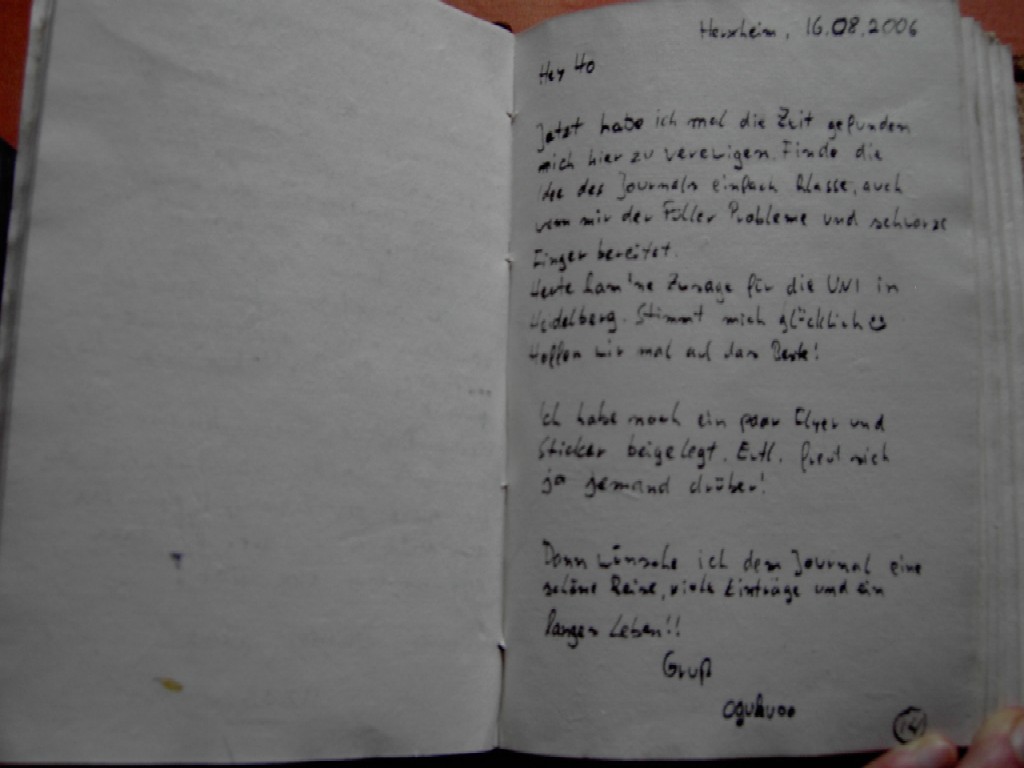 Herxheim, 16.08.2006
Hey Ho
Jetzt habe ich mal die Zeit gefunden
mich hier zu verewigen. Finde die
Idee des Journals einfach klasse, auch
wenn mir der Füller Probleme und schwarze
Finger bereitet.
Heute kam 'ne Zusage für die UNI in
Heidelberg. Stimmt mich glücklich ☺
Hoffen wir mal auf das Beste!
Ich habe noch ein paar Flyer und
Sticker beigelegt. Evtl. freut sich
ja jemand drüber!
Dann wünsche ich dem Journal eine
schöne Reise, viele Einträge und ein
langes Leben!!
Gruß
14